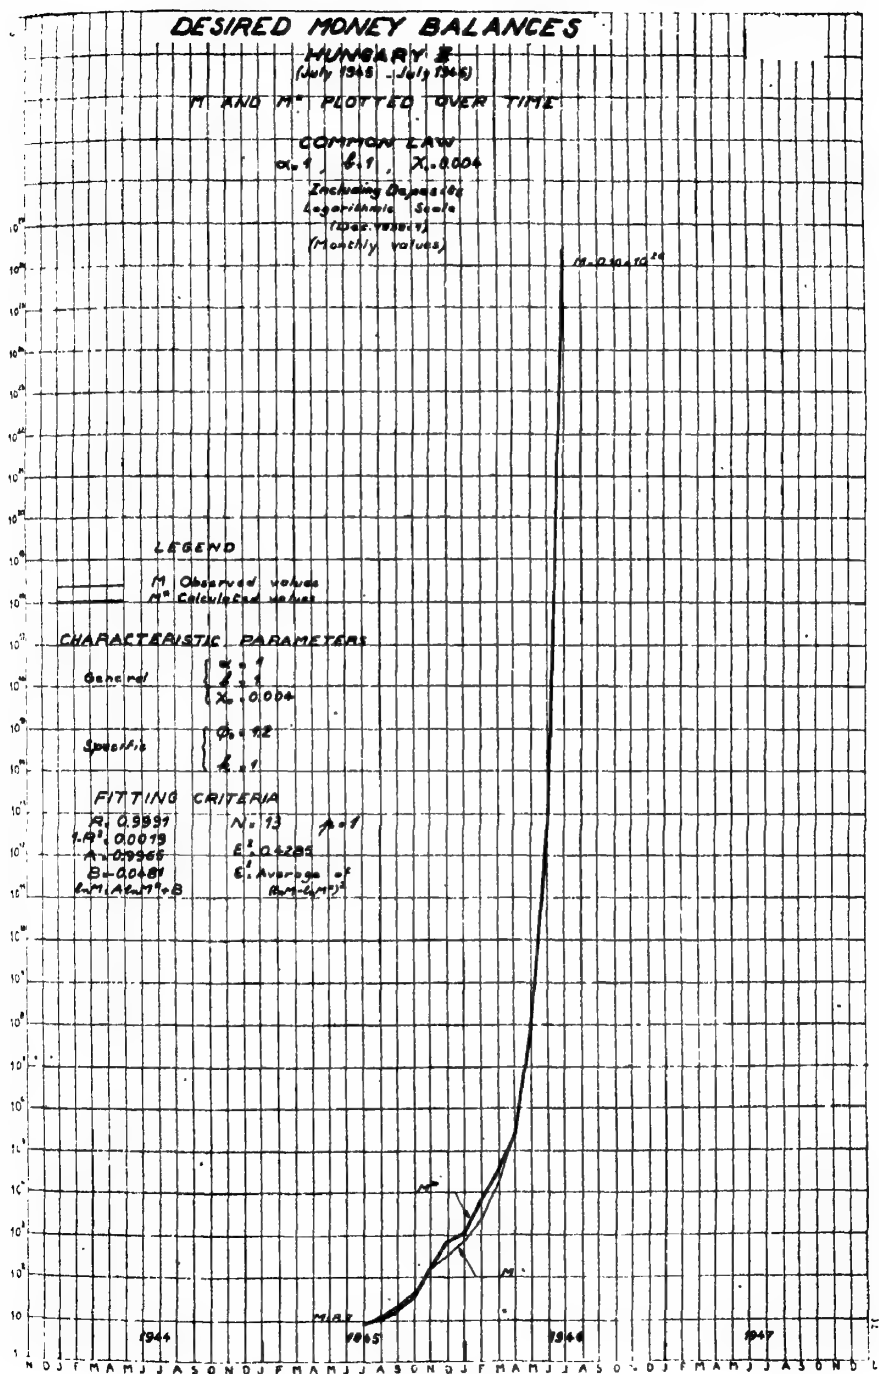 DESIRED MONEY BALANCES
HUNGARY II
(July 1945 - July 1946)
M AND M* PLOTTED OVER TIME
COMMON LAW
α = 1, b = 1, X₀ = 0.004
Including Deposits
Logarithmic Scale
(Monthly values)
LEGEND
M Observed values
M* Calculated values
CHARACTERISTIC PARAMETERS
General
α = 1
b = 1
X₀ = 0.004
Specific
Φ₀ = 1.2
k = 1
FITTING CRITERIA
R = 0.9991 N = 13 p = 1
1-R² = 0.0019
A = 0.9965 E² = 0.4285
B = 0.0481 E² = Average of
lnM = A lnM* + B (lnM-lnM*)²
M*
M
10⁸
10⁷
10⁶
10⁵
10⁴
10³
10²
10
1
1944 1945 1946 1947
N D J F M A M J J A S O N D J F M A M J J A S O N D J F M A M J J A S O N D J F M A M J J A S O N D